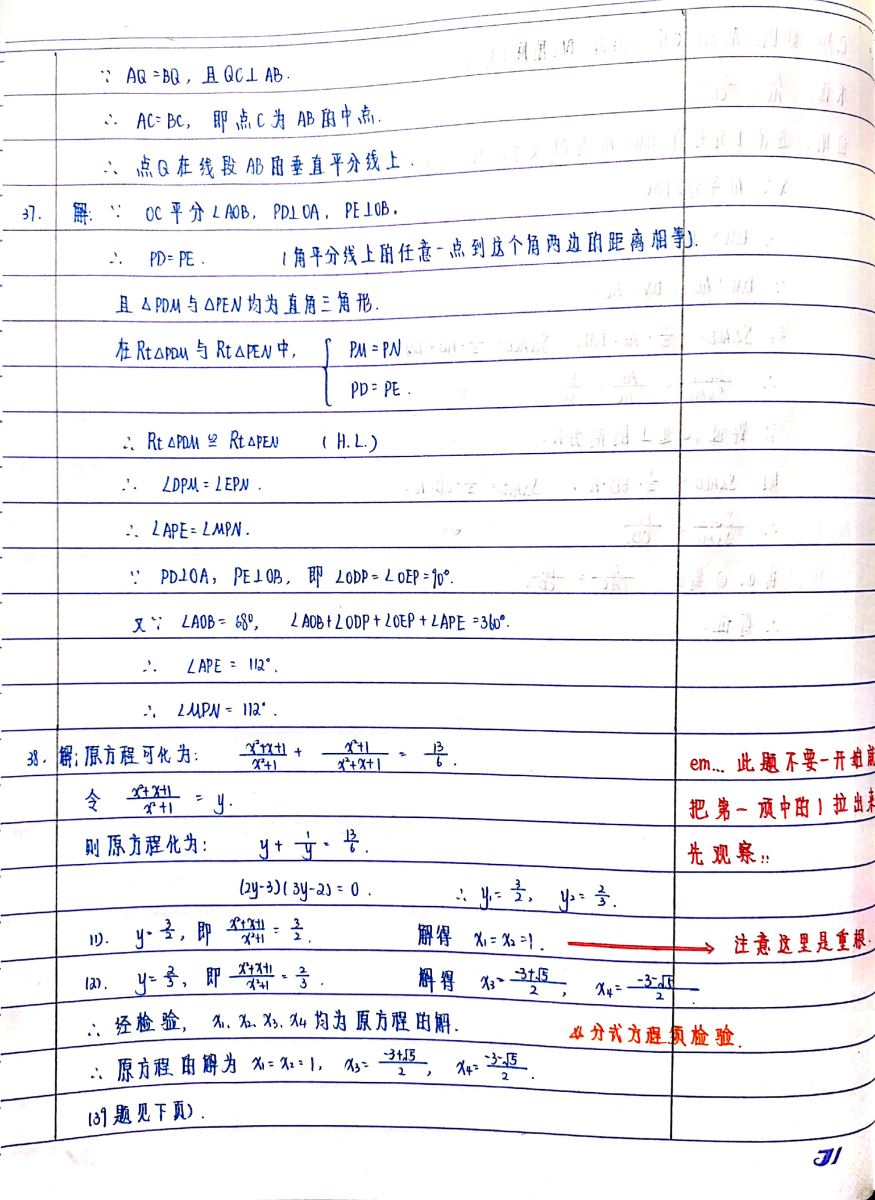 ∵ AQ=BQ，且QC⊥AB.
∴ AC=BC，即点C为AB的中点.
∴ 点Q在线段AB的垂直平分线上.
37. 解：∵ OC平分∠AOB，PD⊥OA，PE⊥OB，
∴ PD=PE. (角平分线上的任意一点到这个角两边的距离相等).
且△PDM与△PEN均为直角三角形.
在Rt△PDM与Rt△PEN中，{ PM=PN
PD=PE.
∴ Rt△PDM≌Rt△PEN (H.L.)
∴ ∠DPM=∠EPN.
∴ ∠APE=∠MPN.
∵ PD⊥OA，PE⊥OB，即∠ODP=∠OEP=90°.
又∵ ∠AOB=68°, ∠AOB+∠ODP+∠OEP+∠APE=360°.
∴ ∠APE=112°.
∴ ∠MPN=112°.
38. 解：原方程可化为： (x²+x+1)/(x²+1) + (x²+1)/(x²+x+1) = 13/6.
em... 此题不要一开始就
令 (x²+x+1)/(x²+1) = y.
把第一项中的1拉出来
则原方程化为： y + 1/y = 13/6.
先观察!!
(2y-3)(3y-2)=0. ∴ y₁=3/2, y₂=2/3.
(1). y=3/2，即 (x²+x+1)/(x²+1) = 3/2. 解得 x₁=x₂=1. → 注意这里是重根.
(2). y=2/3，即 (x²+x+1)/(x²+1) = 2/3. 解得 x₃=(-3+√5)/2, x₄=(-3-√5)/2.
∴ 经检验，x₁、x₂、x₃、x₄均为原方程的解. 分式方程须检验.
∴ 原方程的解为 x₁=x₂=1, x₃=(-3+√5)/2, x₄=(-3-√5)/2.
(39题见下页).
31